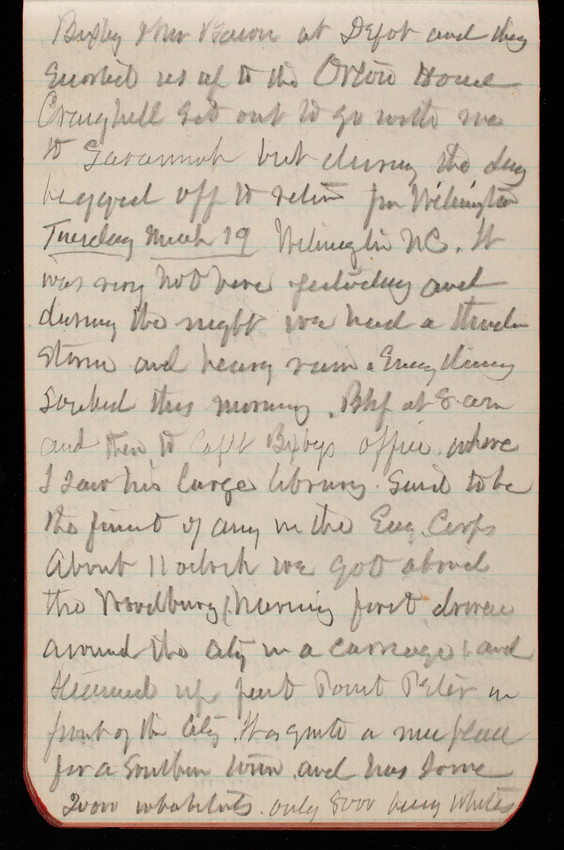 Bixby & Mr Bacon at Depot and they
Escorted us up to the Orton House
Craighill set out to go with me
to Savannah but during the day
begged off to return from Wilmington
Tuesday March 19 Wilmington NC. It
was very hot here yesterday and
during the night we had a thunder
storm and heavy rain. Every thing
soaked this morning. Bkf at 8 am
and then to Capt Bixbys office where
I saw his large library. Said to be
the finest of any in the Eng. Corps
About 11 oclock we got aboard
the Woodbury (having first driven
around the city in a carriage) and
steamed up past Point Peter in
front of the City. It is quite a nice place
for a Southern town and has some
20000 inhabitants. only 8000 being whites